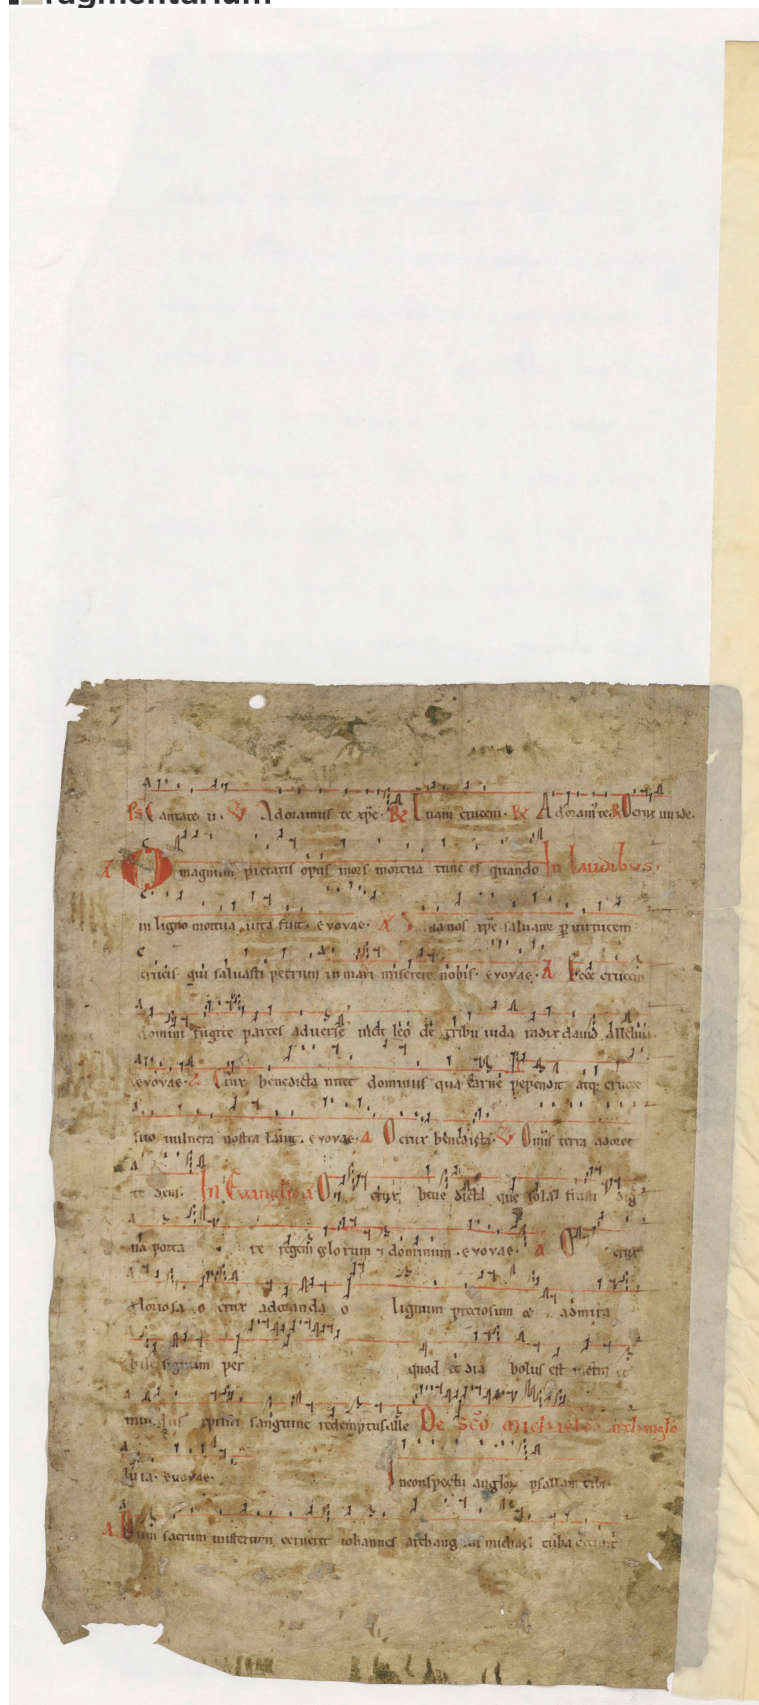 fragmentarium
Ps Cantate. ii. V Adoramus te xpe. R Tuam crucem. R Adoram' te. R O crux viride.
A O magnum pietatis opus mors mortua tunc est quando In laudibus.
in ligno mortua vita fuit. evovae. A Salva nos xpe salvator p virtutem
crucis qui salvasti petrum in mari miserere nobis. evovae. A Ecce crucem
domini fugite partes adverse vicit leo de tribu iuda radix david alleluia
evovae. A Crux benedicta nitet dominus qua carne pependit atq; cruore
suo vulnera nostra lavit. evovae. a O crux benedicta. V Omnis terra adoret
te deus. In Evanglio a O crux bene dicta que sola fuisti dig
na porta re regem celorum 7 dominum. evovae. a O crux
gloriosa o crux adoranda o lignum preciosum et admira
bile signum per quod et dia bolus est victus et
mundus xpristi sanguine redemptus alle De sco michaele archanglo
luia. evovae. In conspectu anglor psallam tibi.
A Dum sacrum misterium cerneret iohannes archang lus michael tuba cecinit